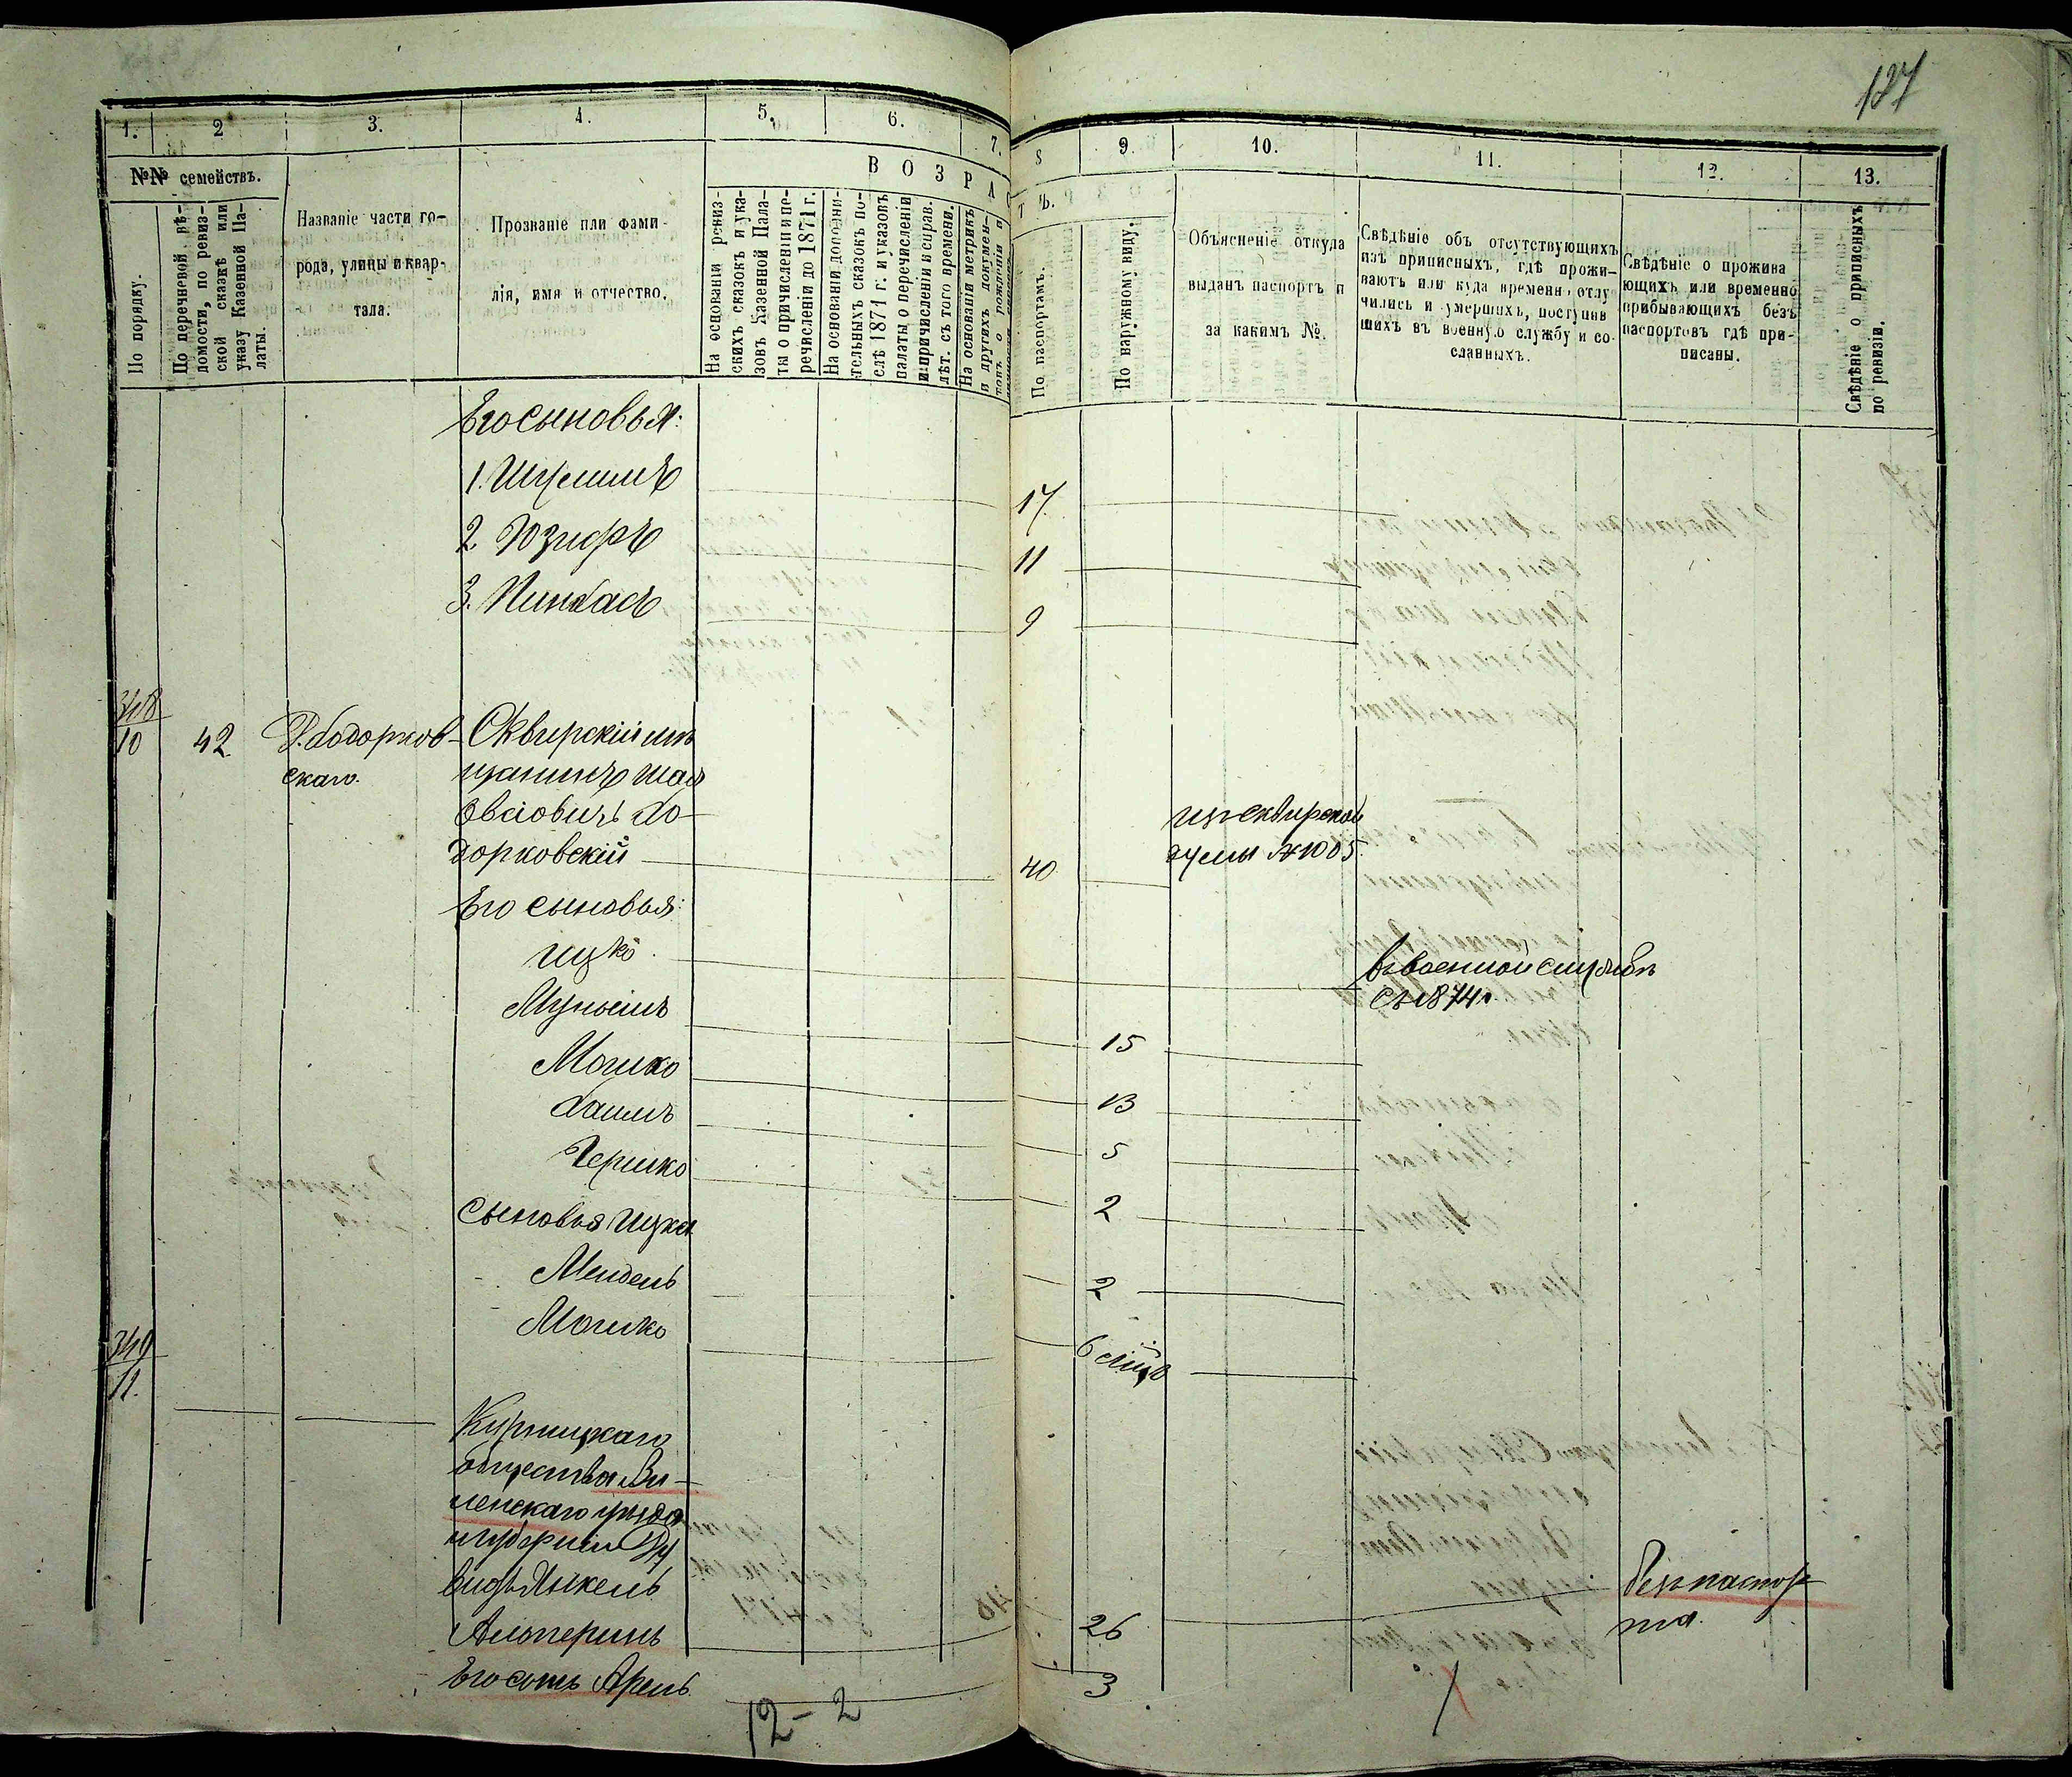 127
1. 2 3. 4. 5. 6. 7. 8 9. 10. 11. 12. 13.
№№ семействъ.
По порядку.
По перечневой вѣ-
домости, по ревиз-
ской сказкѣ или
указу Казенной Па-
латы.
Названіе части го-
рода, улицы и квар-
тала.
Прозваніе или фами-
лія, имя и отчество.
ВОЗРАСТЪ.
На основаніи ревиз-
скихъ сказокъ и ука-
зовъ Казенной Пала-
ты о причисленіи и пе-
речисленіи до 1871 г.
На основаніи дополни-
тельныхъ сказокъ по-
слѣ 1871 г. и указовъ
палаты о перечисленіи
и причисленіи и справ.
лѣт. съ того времени.
На основаніи метрикъ
и другихъ докумен-
товъ о рожденіи и
По паспортамъ.
По наружному виду.
Объясненіе откуда
выданъ паспортъ и
за какимъ №.
Свѣдѣніе объ отсутствующихъ
изъ приписныхъ, гдѣ прожи-
ваютъ или куда временно отлу
чились и умершихъ, поступив
шихъ въ военную службу и со-
сланныхъ.
Свѣдѣніе о прожива
ющихъ или временно
прибывающихъ безъ
паспортовъ гдѣ при-
писаны.
Свѣдѣніе о приписныхъ
по ревизіи.
Его сыновья:
1. Шулимъ 17
2. Юзифъ 11
3. Пинхасъ 9
348
10 42 Д. Ходорков-
скаго.
Сквирскій мѣ
щанинъ Шая
Овсіовичъ Хо-
дорковскій 40
изъ Сквирской
думы №1005.
Его сыновья:
Ицко
въ военной службѣ
съ 1874 г.
Мунышъ 15
Мошко 13
Хаимъ 5
Гершко 2
Сыновья Ицка
Мендель 2
Мошко 6 мѣсяц
349
11.
Курницкаго
общества Ви-
ленскаго уѣзда
и губерніи Ду
видъ Янкель
Альперинъ 26
безъ паспор-
та.
Его сынъ Арель 3
12-2